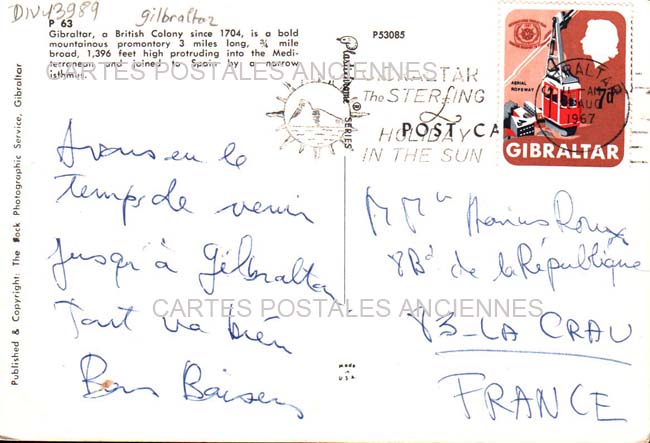 DIV43989
gilbraltar
P 63
Gibraltar, a British Colony since 1704, is a bold
mountainous promontory 3 miles long, ¾ mile
broad, 1,396 feet high protruding into the Medi-
terranean and joined to Spain by a narrow
isthmus.
CARTES POSTALES ANCIENNES
Published & Copyright: The Rock Photographic Service, Gibraltar
Avons eu le
temps de venir
jusqu'à Gilbraltar
Tout va bien
Bons Baisers
P53085
Plastichrome ® SERIES
GIBRALTAR
The STERLING
HOLIDAY
IN THE SUN
POST CA
AERIAL
ROPEWAY
7d
GIBRALTAR
GIBRALTAR
AM
AUG
1967
M Mme Marius Roux
8 Bd de la République
CARTES POSTALES ANCIENNES
83_LA CRAU
FRANCE
MADE IN
U.S.A.